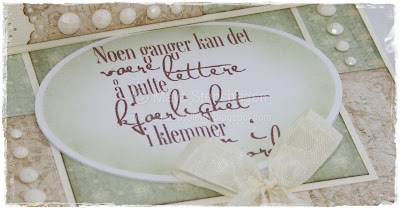 Noen ganger kan det
være lettere
å putte
kjærlighet
i klemmer